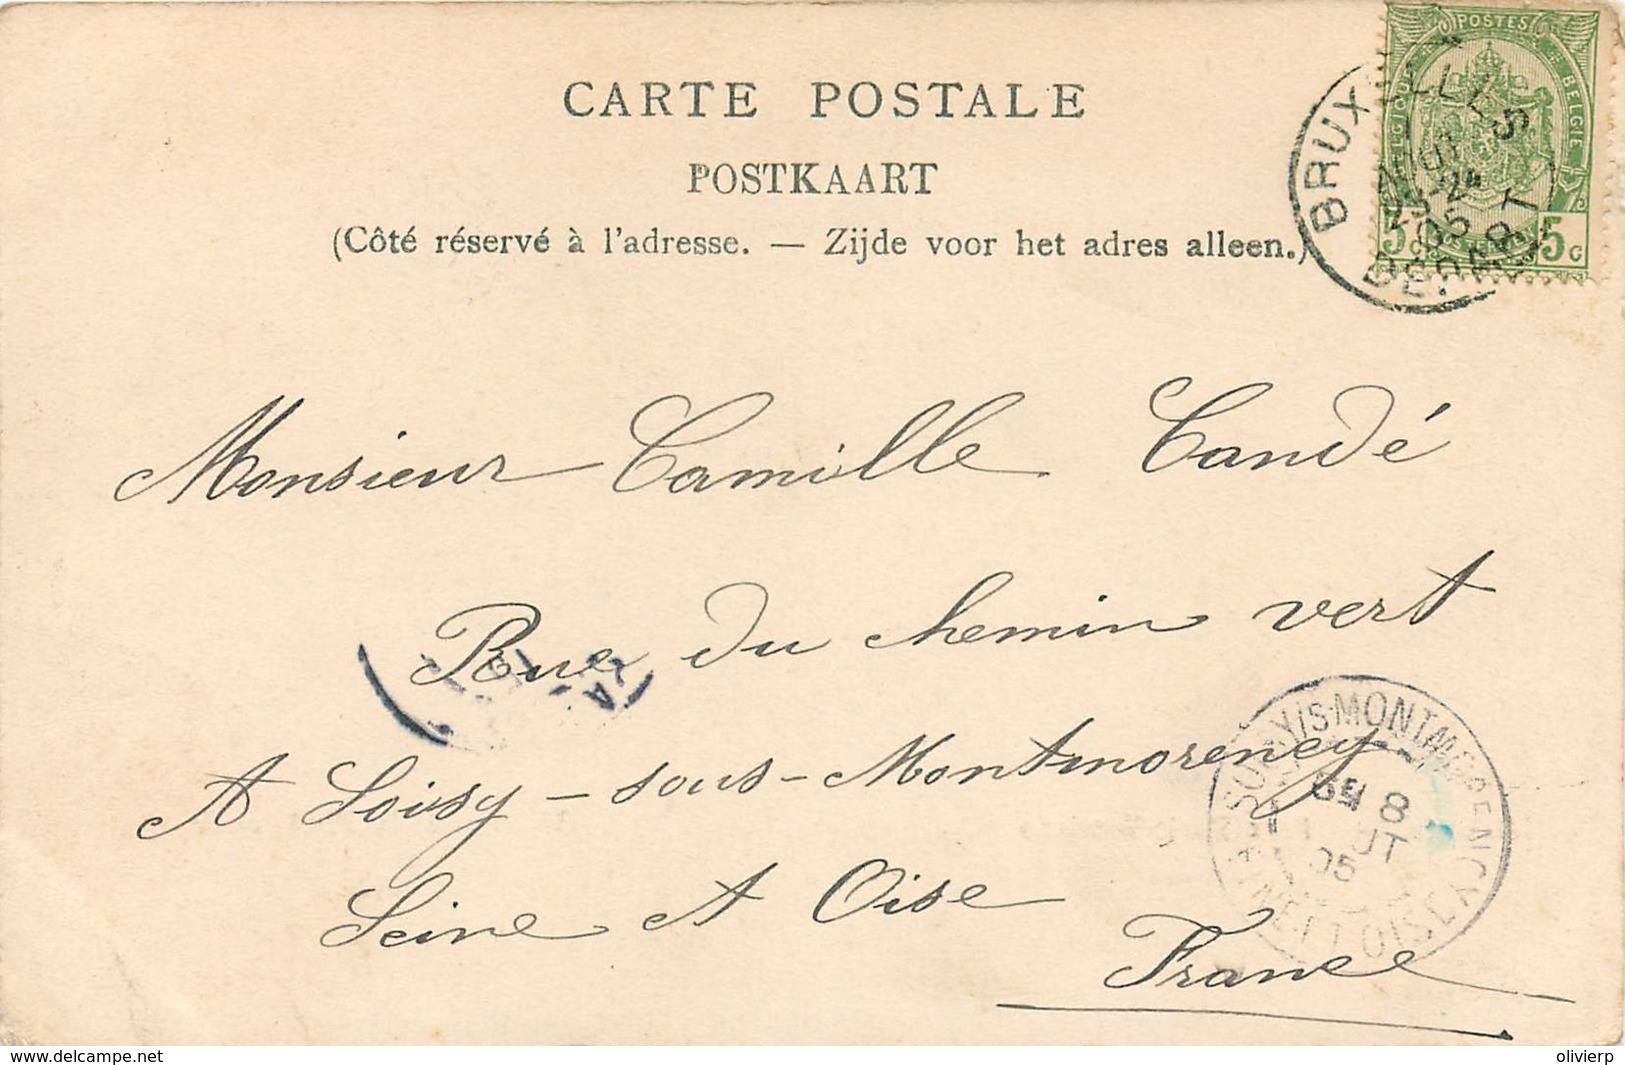 CARTE POSTALE
POSTKAART
(Côté réservé à l'adresse. — Zijde voor het adres alleen.)
POSTES
BELGIE
5c 5c
BRUXELLES
DEPART
Monsieur Camille Candé
Rue du chemin vert
A Soisy-sous-Montmorency
Seine et Oise
France
8
05
www.delcampe.net
olivierp